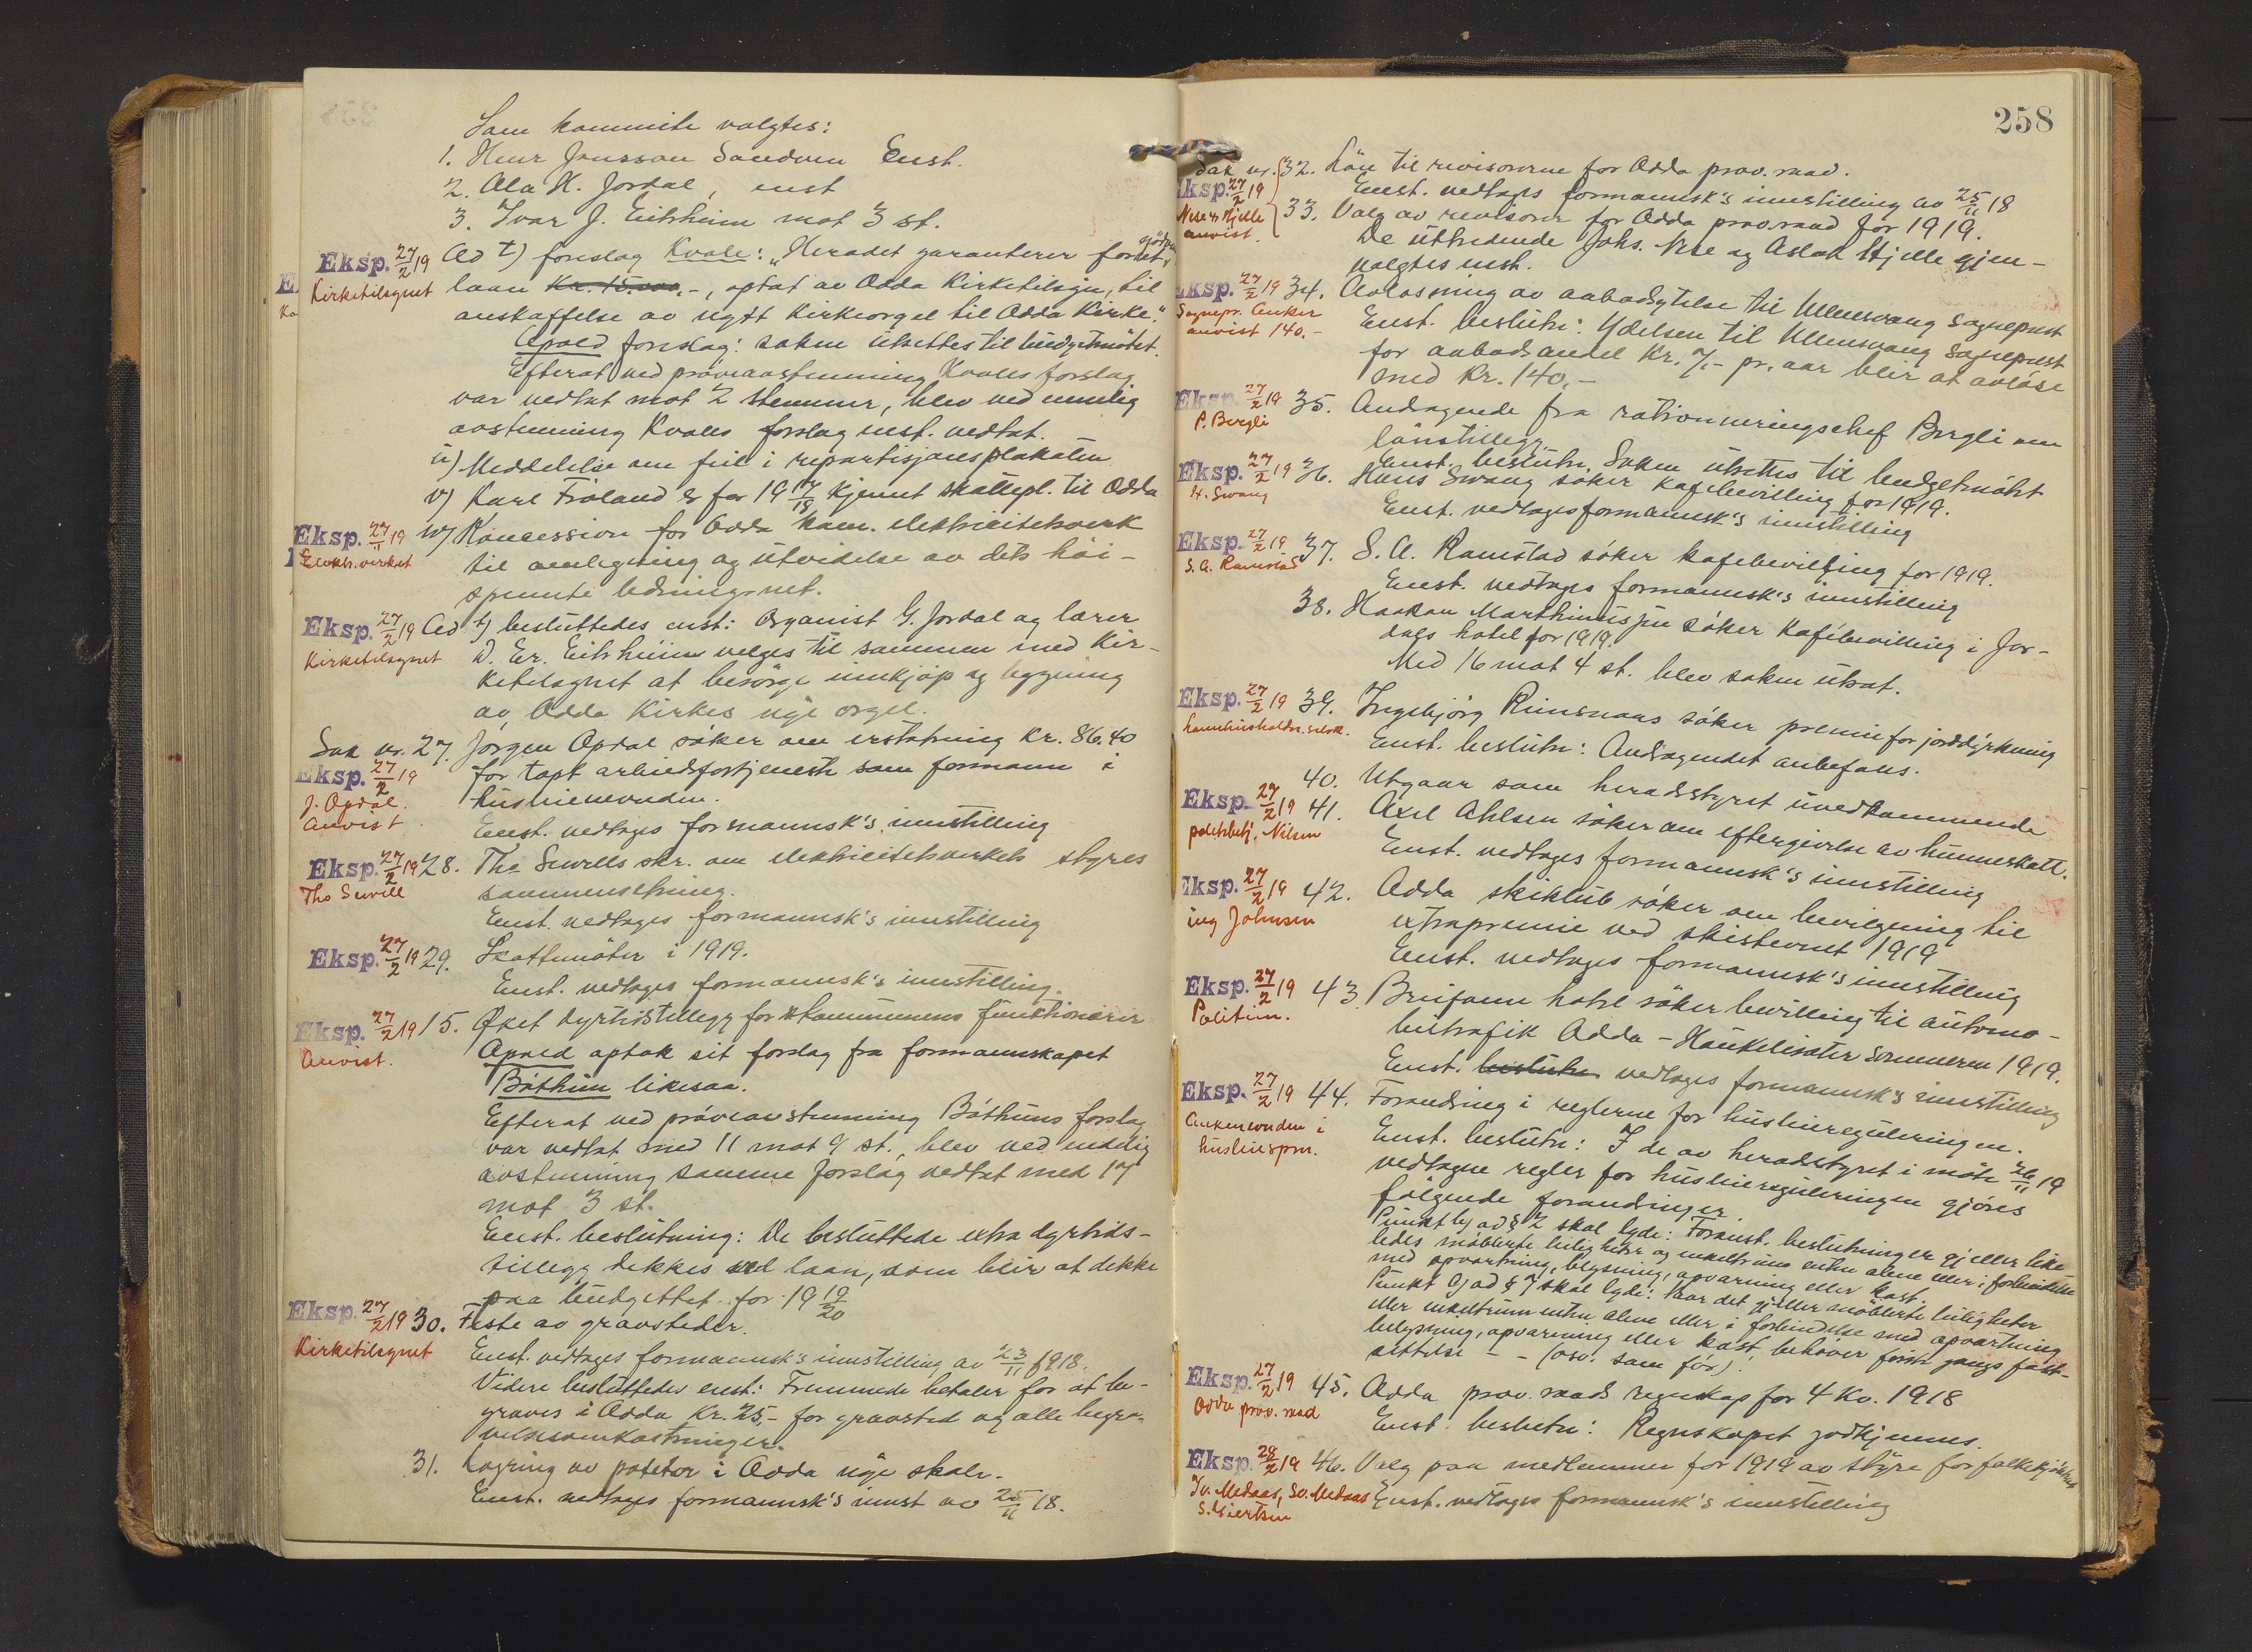 Som kommite valgtes:
1. Henr Jonsson Sandven Enst.
2. Ola H. Jordal, enst
3. Ivar J. Eitrheim mot 3 st.
Eksp. 27/2 19 Ad t) forslag Kvale: "Heradet garanterer for et
Kirketilsynet laan kr. 15.000,-, optat av Odda Kirketilsyn, til
anskaffelse av nytt kirkeorgel til Odda Kirke."
Apold forslag: saken utsettes til budgetmötet.
Efterat ved pröveavstemning Kvales forslag
var vedtat mot 2 stemmer, blev ved enndelig
avstemning Kvales forslag enst. vedtat.
u) Meddelelse om feil i repartisjonsplakaten
v) Karl Fröland er for 19 17/18 kjennt skattepl. til Odda
Eksp. 27/11 19 w) Koncession for Odda kom. elektricitetsverk
Elektr. verket til omlegning og utvidelse av dets höi-
spennte ledningsnet.
Eksp. 27/2 19 Ad t) besluttedes enst: Organist G. Jordal og lærer
Kirketilsynet D. Er. Eitrheim velges til sammen med Kir-
ketilsynet at besörge innkjöp og bygning
av Odda Kirkes nye orgel.
Sak nr. 27. Jörgen Opdal söker om erstatning kr. 86.40
Eksp. 27/2 19 for tapt arbeidsfortjeneste som formann i
J. Opdal. husleienevnden.
Anvist Enst. vedtages formannsk's innstilling
Eksp. 27/2 19 28. Tho Sewills skr. om elektricitetsverkets styres
Tho Sewill sammensetning.
Enst. vedtages formannsk's innstilling
Eksp. 27/2 19 29. Skattemöter i 1919.
Enst. vedtages formannsk's innstilling.
Eksp. 27/2 19 15. Öket dyrtidstillegg for kommunens funktionærer
Anvist. Apold optok sit forslag fra formannskapet
Båthum likesaa.
Efterat ved pröveavstemning Båthums forslag
var vedtat med 11 mot 9 st., blev ved endelig
avstemning samme forslag vedtat med 17
mot 3 st.
Enst. beslutning: De besluttede extra dyrtids-
tillegg dekkes ved laan, som blir at dekke
paa budgettet for 19 19/20
Eksp. 27/2 19 30. Feste av gravsteder.
Kirketilsynet Enst. vedtages formannsk's innstilling av 23/11 1918.
Videre besluttedes enst: Fremmede betaler for at be-
graves i Odda kr. 25,- for gravsted og alle begra-
velsesomkostninger.
31. Lagring av poteter i Odda nye skole.
Enst. vedtages formannsk's innst av 25/11 18.
258
Sak nr. 32. Lön til revisorerne for Odda prov. raad.
Eksp. 27/2 19 Enst. vedtages formannsk's innstilling av 25/11 18
Nese & Hjelle 33. Valg av revisorer for Odda prov.raad for 1919.
anvist. De uttredende Johs. Nese og Aslak Hjelle gjen-
valgtes enst.
Eksp. 27/2 19 34. Avlösning av aabodsytelse til Ullensvang Sogneprest
Sognepr. Anker Enst. beslutn: Ydelsen til Ullensvang Sogneprest
anvist 140.- for aabodsandel kr. 7,- pr. aar blir at avlöse
med kr. 140,-
Eksp. 27/2 19 35. Andragende fra rationneringschef Bergli om
P. Bergli lönstillegg.
Enst. beslutn. Saken utsettes til budgetmötet
Eksp. 27/2 19 36. Hans Swang söker kafebevilling for 1919.
H. Swang Enst. vedtages formannsk's innstilling
Eksp. 27/2 19 37. S. A. Ramstad söker kafebevilling for 1919.
S. A. Ramstad Enst. vedtages formannsk's innstilling
38. Haakon Marthinussen söker Kafébevilling i Jor-
dals hotel for 1919.
Med 16 mot 4 st. blev saken utsat.
Eksp. 27/2 19 39. Ingebjörg Reinsnaas söker premie for jorddyrkning
Landhusholdn. selsk. Enst. beslutn: Andragendet anbefales.
40. Utgaar som heradsstyret uvedkommende
Eksp. 27/2 19 41. Axel Ahlsen söker om eftergivelse av hunneskatt.
politibetj. Nilsen Enst. vedtages formannsk's innstilling
Eksp. 27/2 19 42. Odda skiklub söker om bevilgning til
ing Johnsen extrapremie ved skistevnet 1919
Enst. vedtages formannsk's innstilling
Eksp. 27/2 19 43. Breifonn hotel söker bevilling til automo-
Politiin. biltrafik Odda - Haukelisæter sommeren 1919.
Enst. beslutn vedtages formannsk's innstilling
Eksp. 27/2 19 44. Forandring i reglerne for husleiereguleringen.
Ankenevnden i Enst. beslutn: I de av heradsstyret i möte 26/11 19
husleiespm. vedtagne regler for husleiereguleringen gjöres
fölgende forandringer
Punkt b) ad § 2 skal lyde: Foranst. beslutninger gjeller like-
ledes möblerte leiligheter og enkeltrum enten alene eller i forbindelse
med opvartning, belysning, opvarming eller kost.
Punkt 9) ad § 7 skal lyde: Naar det gjeller möblerte leiligheter
eller enkeltrum enten alene eller i forbindelse med opvartning
belysning, opvarming eller kost behöver förste gangs fast-
settelse - - (osv. som för).
Eksp. 27/2 19 45. Odda prov. raads regnskap for 4 kv. 1918
Odda prov. raad Enst. beslutn: Regnskapet godkjennes.
Eksp. 28/2 19 46. Valg paa medlemmer for 1919 av styre for folkekjökkenet
Iv. Medaas, Sv. Medaas Enst. vedtages formannsk's innstilling
S. Giertsen